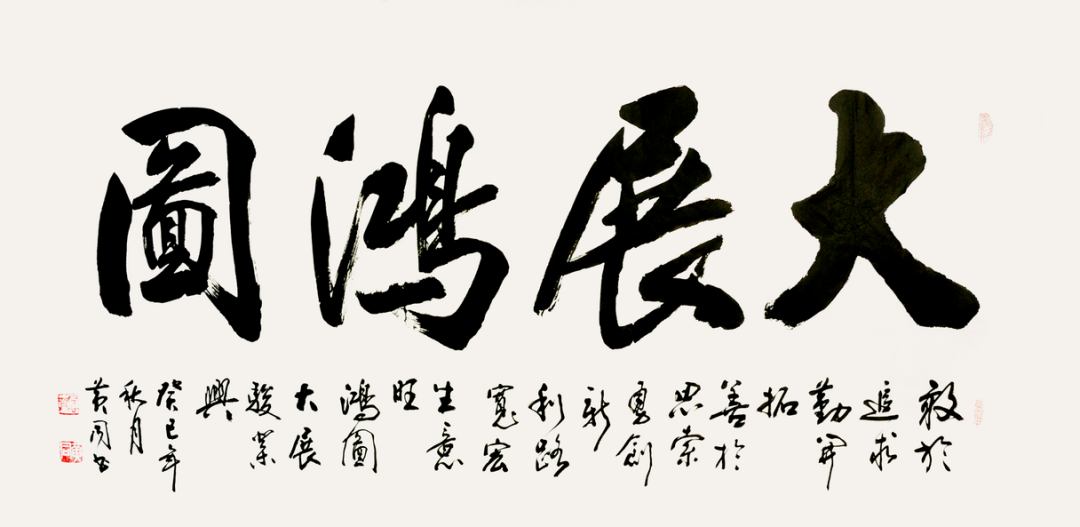 大展鴻圖
敢於
追求
勤開
拓
善於
思索
勇創
新
利路
寬宏
生意
旺
鴻圖
大展
駿業
興
癸巳年
秋月
黄周書